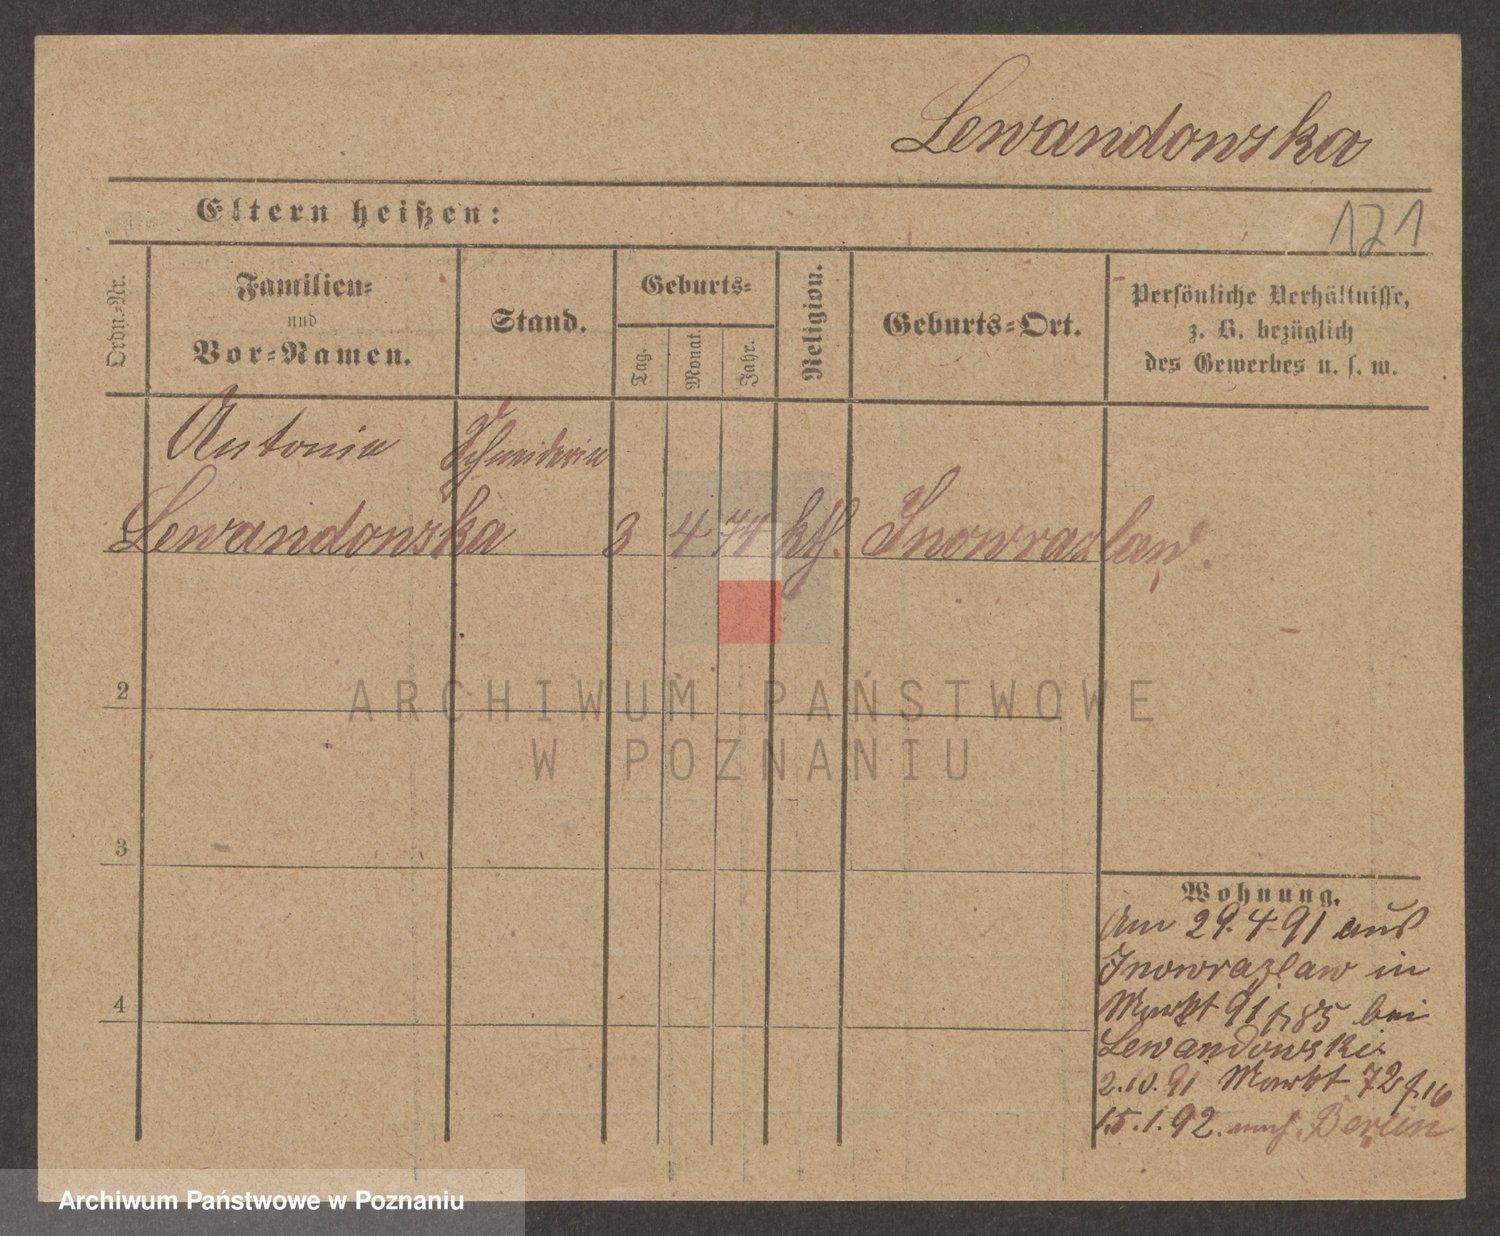 Lewandowska
Eltern heißen:
171
Ordn.-Nr.
Familien-
und
Vor-Namen.
Stand.
Geburts-
Tag.
Monat.
Jahr.
Religion.
Geburts-Ort.
Persönliche Verhältnisse,
z. B. bezüglich
des Gewerbes u. s. w.
Antonie Schneiderin
Lewandowska 3 4 74 kth. Inowrazlaw.
2
ARCHIWUM PAŃSTWOWE
W POZNANIU
3
Wohnung.
Am 29.4.91 aus
Inowrazlaw in
Markt 91 f. 85 bei
Lewandowski.
2.10.91 Markt 72 f. 16
15.1.92. nach Berlin
4
Archiwum Państwowe w Poznaniu